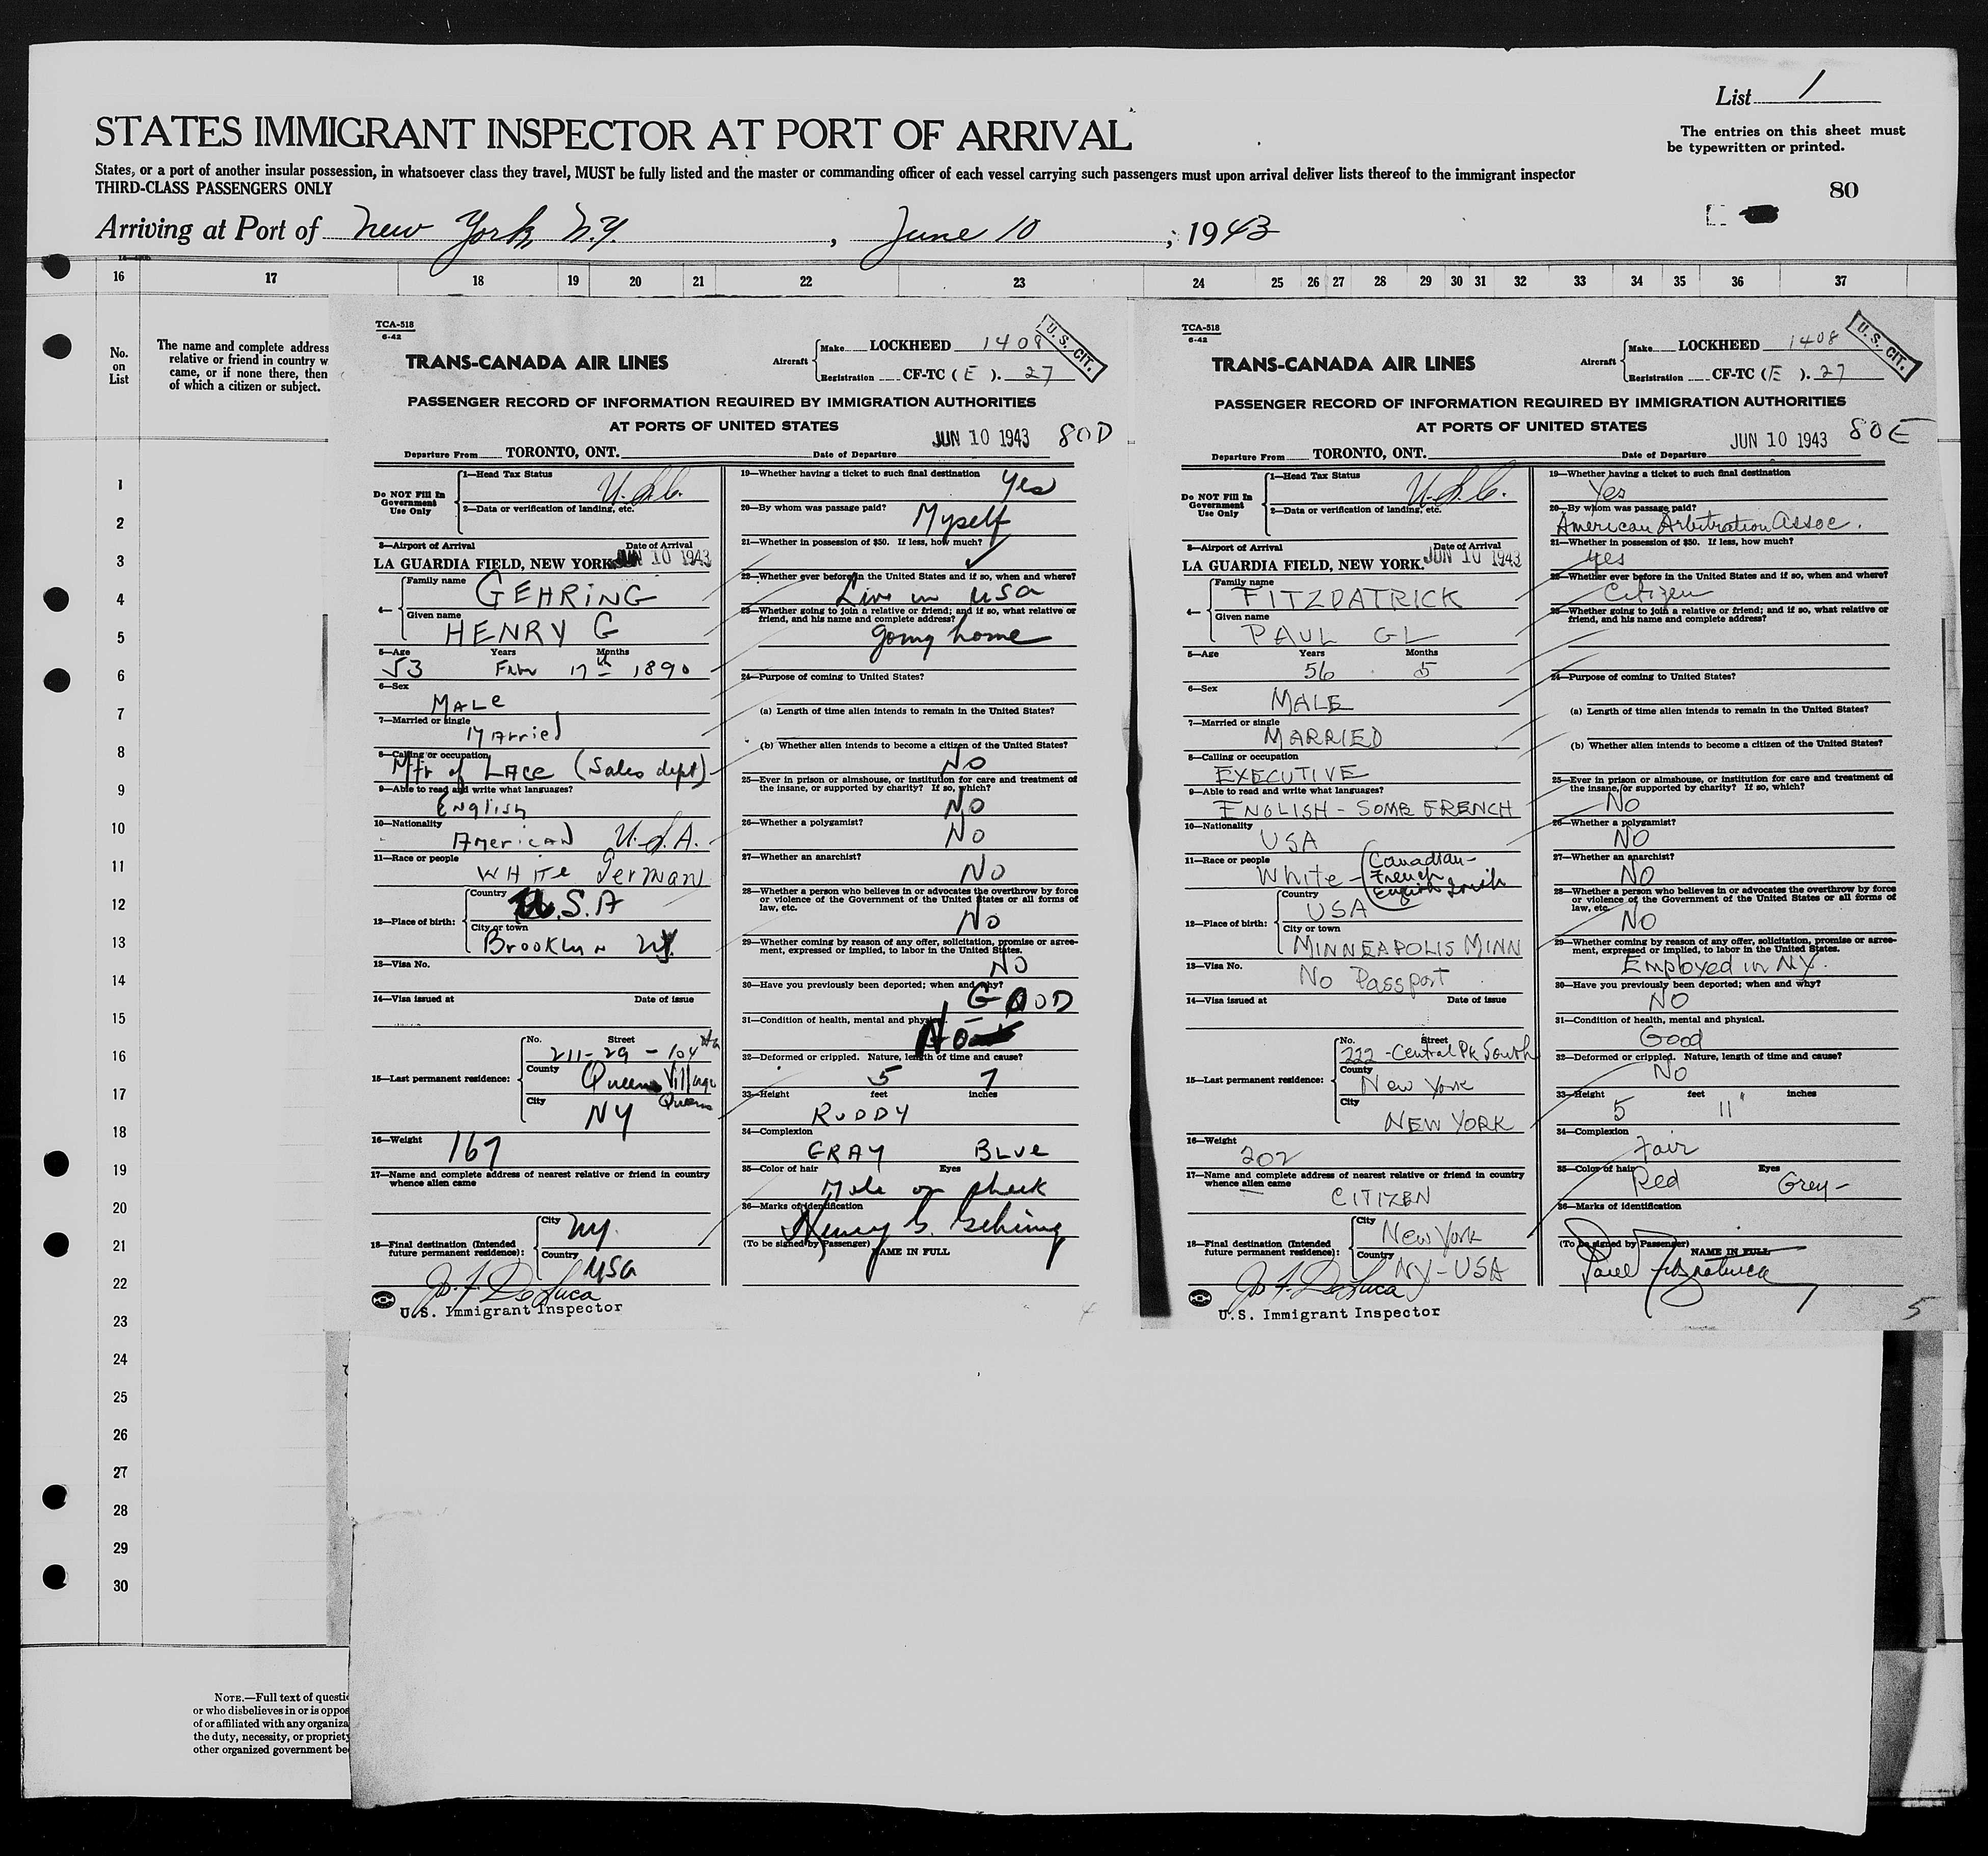 List 1
STATES IMMIGRANT INSPECTOR AT PORT OF ARRIVAL
The entries on this sheet must
be typewritten or printed.
States, or a port of another insular possession, in whatsoever class they travel, MUST be fully listed and the master or commanding officer of each vessel carrying such passengers must upon arrival deliver lists thereof to the immigrant inspector
THIRD-CLASS PASSENGERS ONLY
80
Arriving at Port of New York N.Y., June 10, 1943
16 17 18 19 20 21 22 23 24 25 26 27 28 29 30 31 32 33 34 35 36 37
No.
on
List
The name and complete address
relative or friend in country w
came, or if none there, then
of which a citizen or subject.
1
2
3
4
5
6
7
8
9
10
11
12
13
14
15
16
17
18
19
20
21
22
23
24
25
26
27
28
29
30
NOTE.—Full text of questi
or who disbelieves in or is oppos
of or affiliated with any organiza
the duty, necessity, or propriety
other organized government be
TCA-518
6-42
TRANS-CANADA AIR LINES
Aircraft
Make LOCKHEED 1408
Registration CF-TC (E). 27
U. S. CIT.
PASSENGER RECORD OF INFORMATION REQUIRED BY IMMIGRATION AUTHORITIES
AT PORTS OF UNITED STATES
JUN 10 1943 80D
Departure From TORONTO, ONT. Date of Departure
Do NOT Fill In
Government
Use Only
1—Head Tax Status
U.S.C.
2—Data or verification of landing, etc.
3—Airport of Arrival Date of Arrival
LA GUARDIA FIELD, NEW YORK. JUN 10 1943
4—
Family name
GEHRING
Given name
HENRY G
5—Age Years Months
53 17th 1890
6—Sex
MALE
7—Married or single
Married
8—Calling or occupation
Mfr of LACE (Sales dept)
9—Able to read and write what languages?
English
10—Nationality
American U.S.A.
11—Race or people
WHITE German
12—Place of birth:
Country
U.S.A
City or town
Brooklyn NY.
13—Visa No.
14—Visa issued at Date of issue
15—Last permanent residence:
No. Street
211-29-104
County
Queens Village
Queens
City
NY
16—Weight
167
17—Name and complete address of nearest relative or friend in country
whence alien came
18—Final destination (Intended
future permanent residence):
City
NY.
Country
USA
Jo. F. DeLuca
U.S. Immigrant Inspector
19—Whether having a ticket to such final destination
Yes
20—By whom was passage paid?
Myself
21—Whether in possession of $50. If less, how much?
✓
22—Whether ever before in the United States and if so, when and where?
Live in USA
23—Whether going to join a relative or friend; and if so, what relative or
friend, and his name and complete address?
going home
24—Purpose of coming to United States?
(a) Length of time alien intends to remain in the United States?
(b) Whether alien intends to become a citizen of the United States?
No
25—Ever in prison or almshouse, or institution for care and treatment of
the insane, or supported by charity? If so, which?
No
26—Whether a polygamist?
No
27—Whether an anarchist?
No
28—Whether a person who believes in or advocates the overthrow by force
or violence of the Government of the United States or all forms of
law, etc.
No
29—Whether coming by reason of any offer, solicitation, promise or agree-
ment, expressed or implied, to labor in the United States.
No
30—Have you previously been deported; when and why?
GOOD
31—Condition of health, mental and physical.
No
32—Deformed or crippled. Nature, length of time and cause?
5 7
33—Height feet inches
RUDDY
34—Complexion
GRAY BLUE
35—Color of hair Eyes
Mole on cheek
36—Marks of identification
Henry G. Gehring
(To be signed by Passenger) NAME IN FULL
4
TCA-518
6-42
TRANS-CANADA AIR LINES
Aircraft
Make LOCKHEED 1408
Registration CF-TC (E). 27
U. S. CIT.
PASSENGER RECORD OF INFORMATION REQUIRED BY IMMIGRATION AUTHORITIES
AT PORTS OF UNITED STATES
JUN 10 1943 80E
Departure From TORONTO, ONT. Date of Departure
Do NOT Fill In
Government
Use Only
1—Head Tax Status
U.S.C.
2—Data or verification of landing, etc.
3—Airport of Arrival Date of Arrival
LA GUARDIA FIELD, NEW YORK. JUN 10 1943
4—
Family name
FITZPATRICK
Given name
PAUL GL
5—Age Years Months
56 5
6—Sex
MALE
7—Married or single
MARRIED
8—Calling or occupation
EXECUTIVE
9—Able to read and write what languages?
ENGLISH - SOME FRENCH
10—Nationality
USA
11—Race or people
White - (Canadian-
French
English Irish
12—Place of birth:
Country
USA
City or town
MINNEAPOLIS MINN
13—Visa No.
No Passport
14—Visa issued at Date of issue
15—Last permanent residence:
No. Street
222 - Central Pk South
County
New York
City
NEW YORK
16—Weight
202
17—Name and complete address of nearest relative or friend in country
whence alien came
CITIZEN
18—Final destination (Intended
future permanent residence):
City
New York
Country
NY-USA
Jo. F. DeLuca
U.S. Immigrant Inspector
19—Whether having a ticket to such final destination
Yes
20—By whom was passage paid?
American Arbitration Assoc.
21—Whether in possession of $50. If less, how much?
Yes
22—Whether ever before in the United States and if so, when and where?
Citizen
23—Whether going to join a relative or friend; and if so, what relative or
friend, and his name and complete address?
24—Purpose of coming to United States?
(a) Length of time alien intends to remain in the United States?
(b) Whether alien intends to become a citizen of the United States?
25—Ever in prison or almshouse, or institution for care and treatment of
the insane, or supported by charity? If so, which?
NO
26—Whether a polygamist?
NO
27—Whether an anarchist?
NO
28—Whether a person who believes in or advocates the overthrow by force
or violence of the Government of the United States or all forms of
law, etc.
NO
29—Whether coming by reason of any offer, solicitation, promise or agree-
ment, expressed or implied, to labor in the United States.
Employed in NY.
30—Have you previously been deported; when and why?
NO
31—Condition of health, mental and physical.
Good
32—Deformed or crippled. Nature, length of time and cause?
No
33—Height feet inches
5 11"
34—Complexion
Fair
35—Color of hair Eyes
Red Grey-
36—Marks of identification
(To be signed by Passenger) NAME IN FULL
Paul Fitzpatrick
5